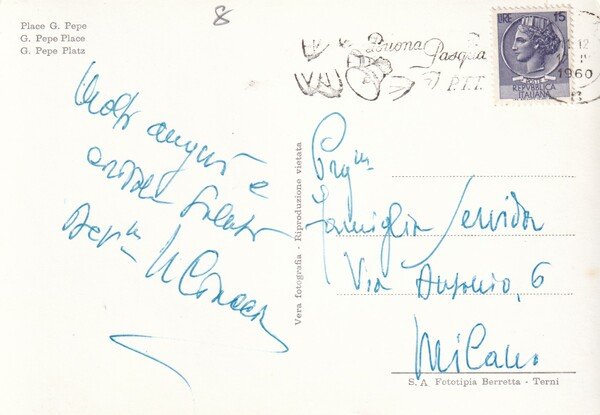 Place G. Pepe
G. Pepe Place
G. Pepe Platz
8
Buona
Pasqua
P.T.T.
LIRE 15
REPVBBLICA
ITALIANA
12
1960
Molti auguri e
saluti
Vera fotografia - Riproduzione vietata
Preg.ma
Famiglia Servidor
Via Antonio, 6
Milano
S. A. Fototipia Berretta - Terni